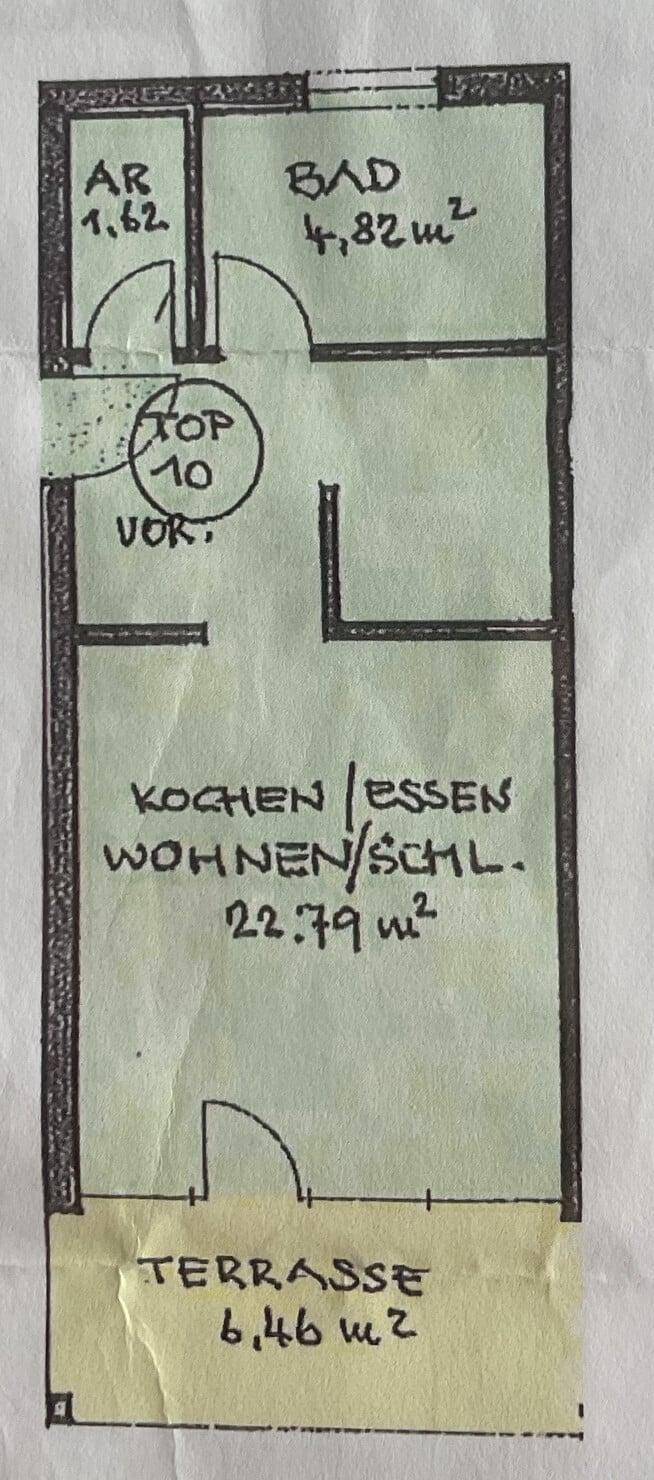 AR
1,62
BAD
4,82 m²
TOP
10
VOR.
KOCHEN/ESSEN
WOHNEN/SCHL.
22.79 m²
TERRASSE
6,46 m²